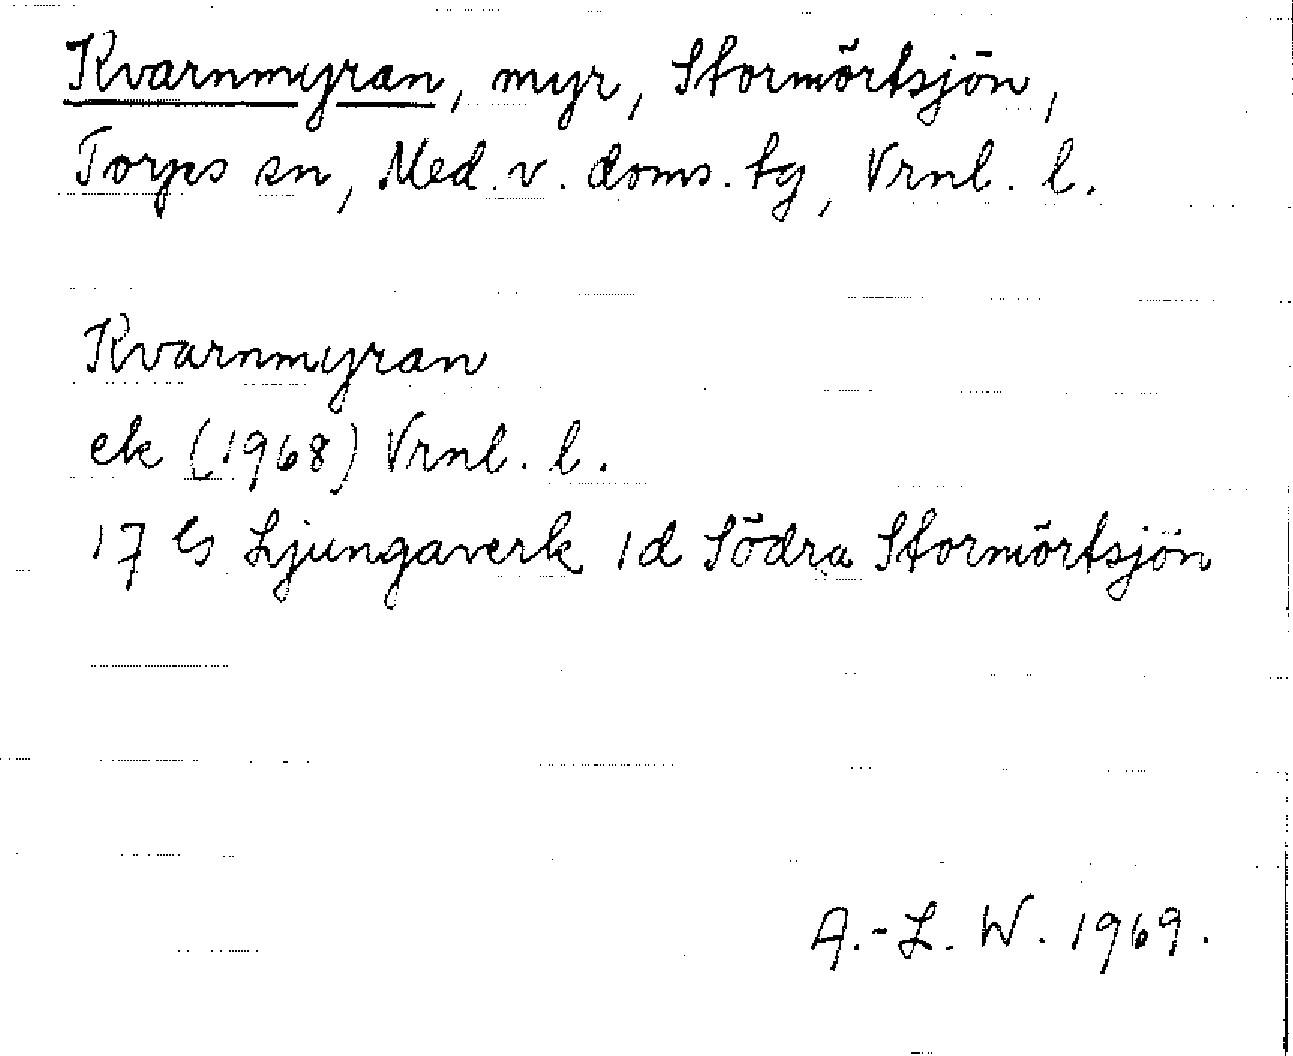 Kvarnmyran, myr, Stormörtsjön,
Torps sn, Med. v. doms. tg, Vrnl. l.
Kvarnmyran
ek (1968) Vrnl. l.
17 G Ljungaverk 1d Södra Stormörtsjön
A.-L. W. 1969.